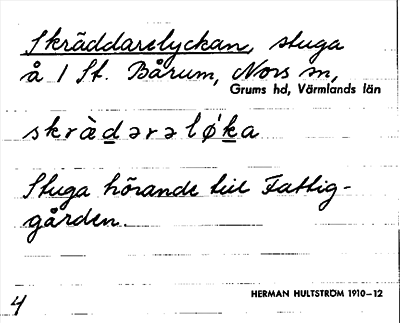 Skräddarelyckan, stuga
å 1 St. Bårum, Nors sn,
Grums hd, Värmlands län
skrὰdərəlǿka
Stuga hörande till Fattig-
gården.
4
HERMAN HULTSTRÖM 1910–12